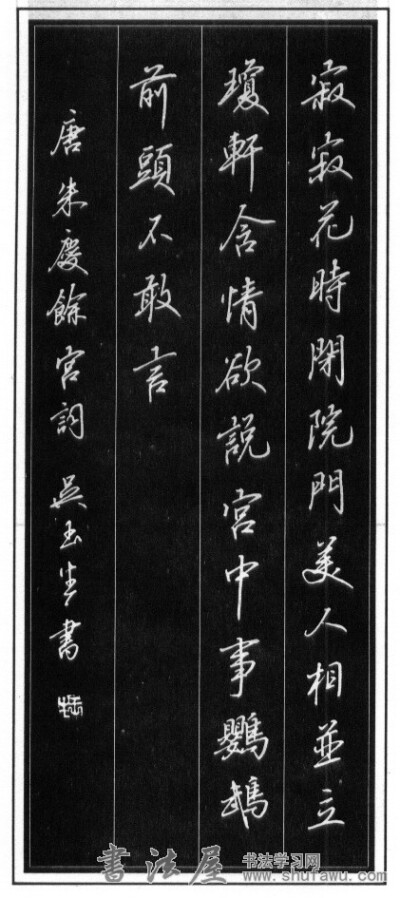 寂寂花時閉院門美人相並立
瓊軒含情欲説宮中事鸚鵡
前頭不敢言
唐朱慶餘宮詞 吴玉生書
書法屋
书法学习网
www.shufawu.com